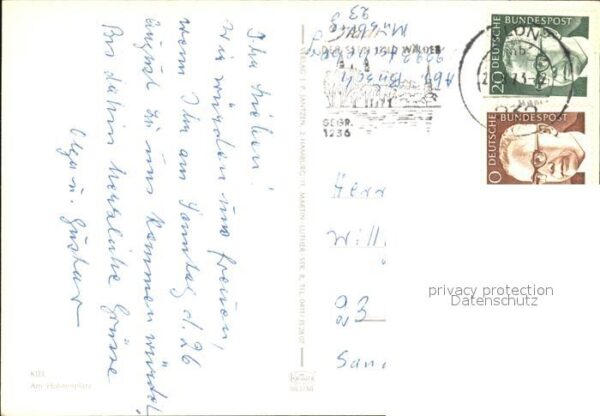 Ihr Lieben!
Wir würden uns freuen,
wenn Ihr am Sonntag d. 26
August zu uns kommen würdet.
Bis dahin herzliche Grüsse
Olga u. Gustav
KIEL
Am Holstenplatz
VERLAG F. P. JANTZEN, 2 HAMBURG 11, MARTIN-LUTHER-STR. 8, TEL. 0411/35 26 07
WÄLDER
GEGR.
1236
Abs.
23
DEUTSCHE BUNDESPOST
20
DEUTSCHE BUNDESPOST
Herr
Will
23
San
privacy protection
Datenschutz